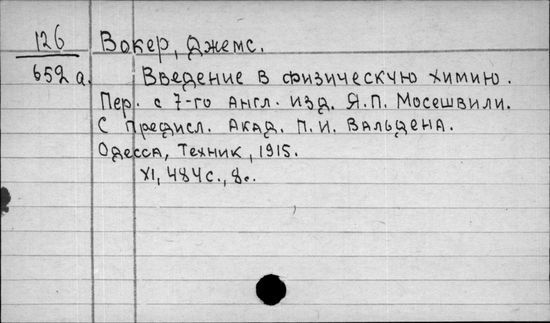 126 Вокер, Джемс.
652а. Введение в физическую химию.
Пер. с 7-го англ. изд. Я.П. Мосешвили.
С предисл. Акад. П.И. Вальдена.
Одесса, Техник, 1915.
XI, 484 с., 8°.